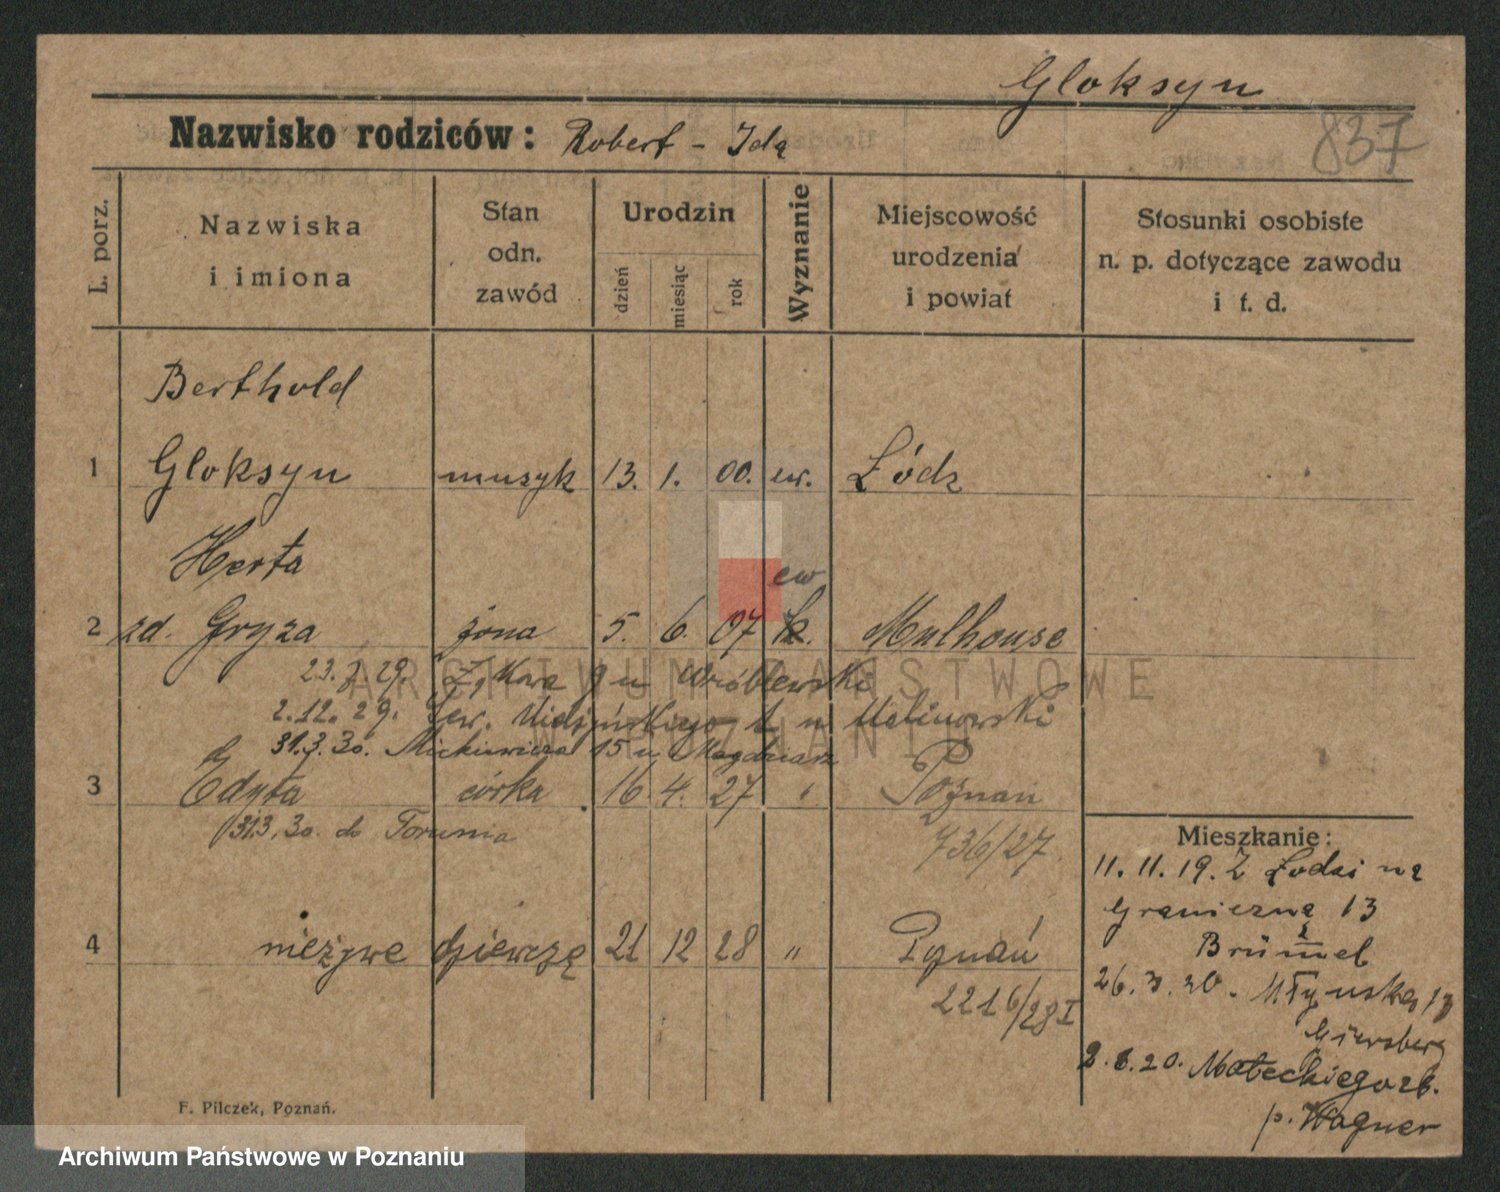 Gloksyn
837
Nazwisko rodziców: Robert - Idą
L. porz.
Nazwiska i imiona
Stan odn. zawód
Urodzin
dzień
miesiąc
rok
Wyznanie
Miejscowość urodzenia i powiat
Stosunki osobiste n. p. dotyczące zawodu i t. d.
Berthold
1 Gloksyn musyk 13. 1. 00. ew. Łódz
Herta
ew
2 zd. Gryza żona 5. 6. 07 k. Mulhouse
23. 29. u Wróblewski
2.12.29. Sew. Mielżyńskiego u Malinowski
31.3.30. Mickiewicza 15 u
3 Edyta córka 16 4. 27 Poznań
31.3.30. do Torunia
736/27
4 nieżywe dziewczę 21 12 28 " Poznań
2216/28 I
Mieszkanie:
11. 11. 19. Z Łodzi na
Graniczną 13
Brümel
26. 3. 20. Młyńska
Giersberg
2. 20. Małeckiego 26.
p. Wagner
F. Pilczek, Poznań.
ARCHIWUM PAŃSTWOWE
W POZNANIU
Archiwum Państwowe w Poznaniu